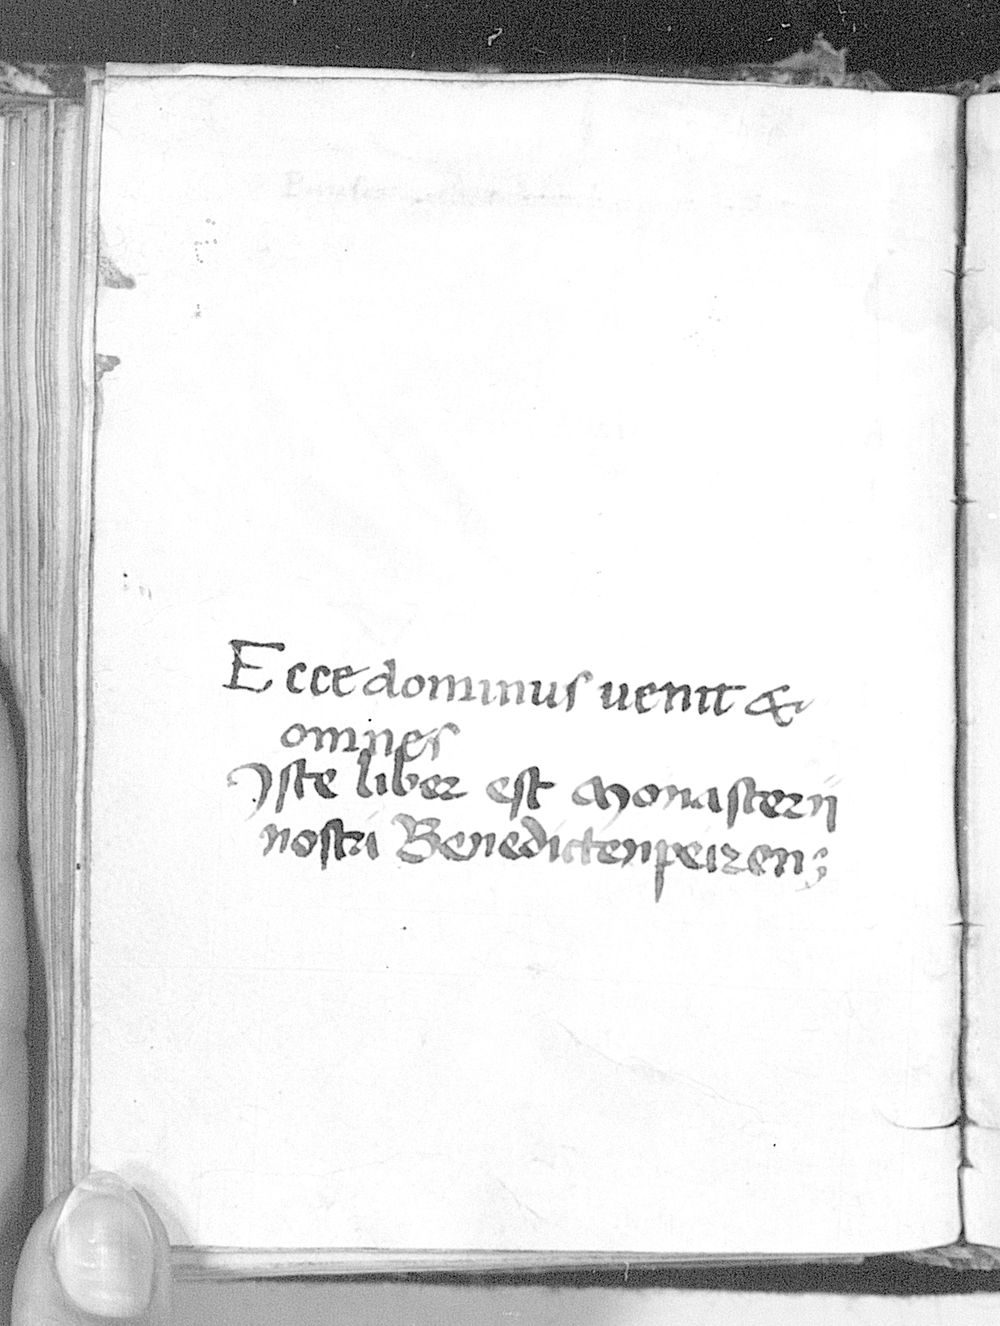 Ecce dominus uenit &
omnes
Iste liber est Monasterii
nostri Benedictenpeizen;